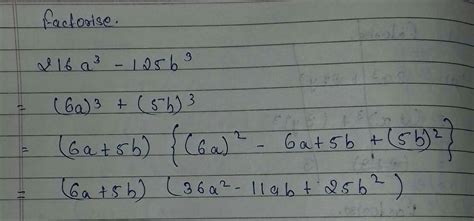 Factorise.
216a³ - 125b³
= (6a)³ + (5b)³
= (6a+5b) {(6a)² - 6a+5b + (5b)²}
= (6a+5b) (36a² - 11ab + 25b²)